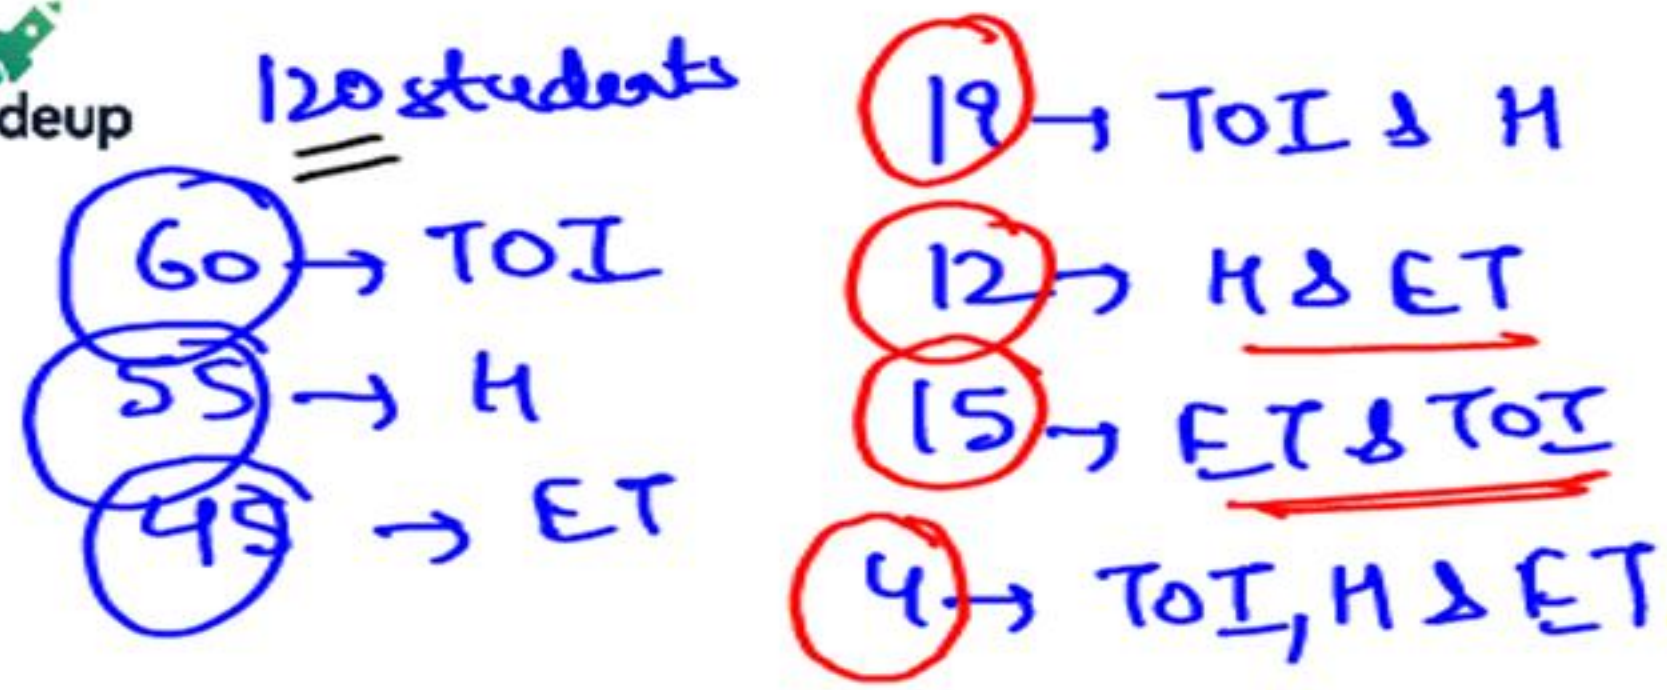 deup
120 students
60 → TOI
55 → H
45 → ET
19 → TOI & H
12 → H & ET
15 → ET & TOI
4 → TOI, H & ET